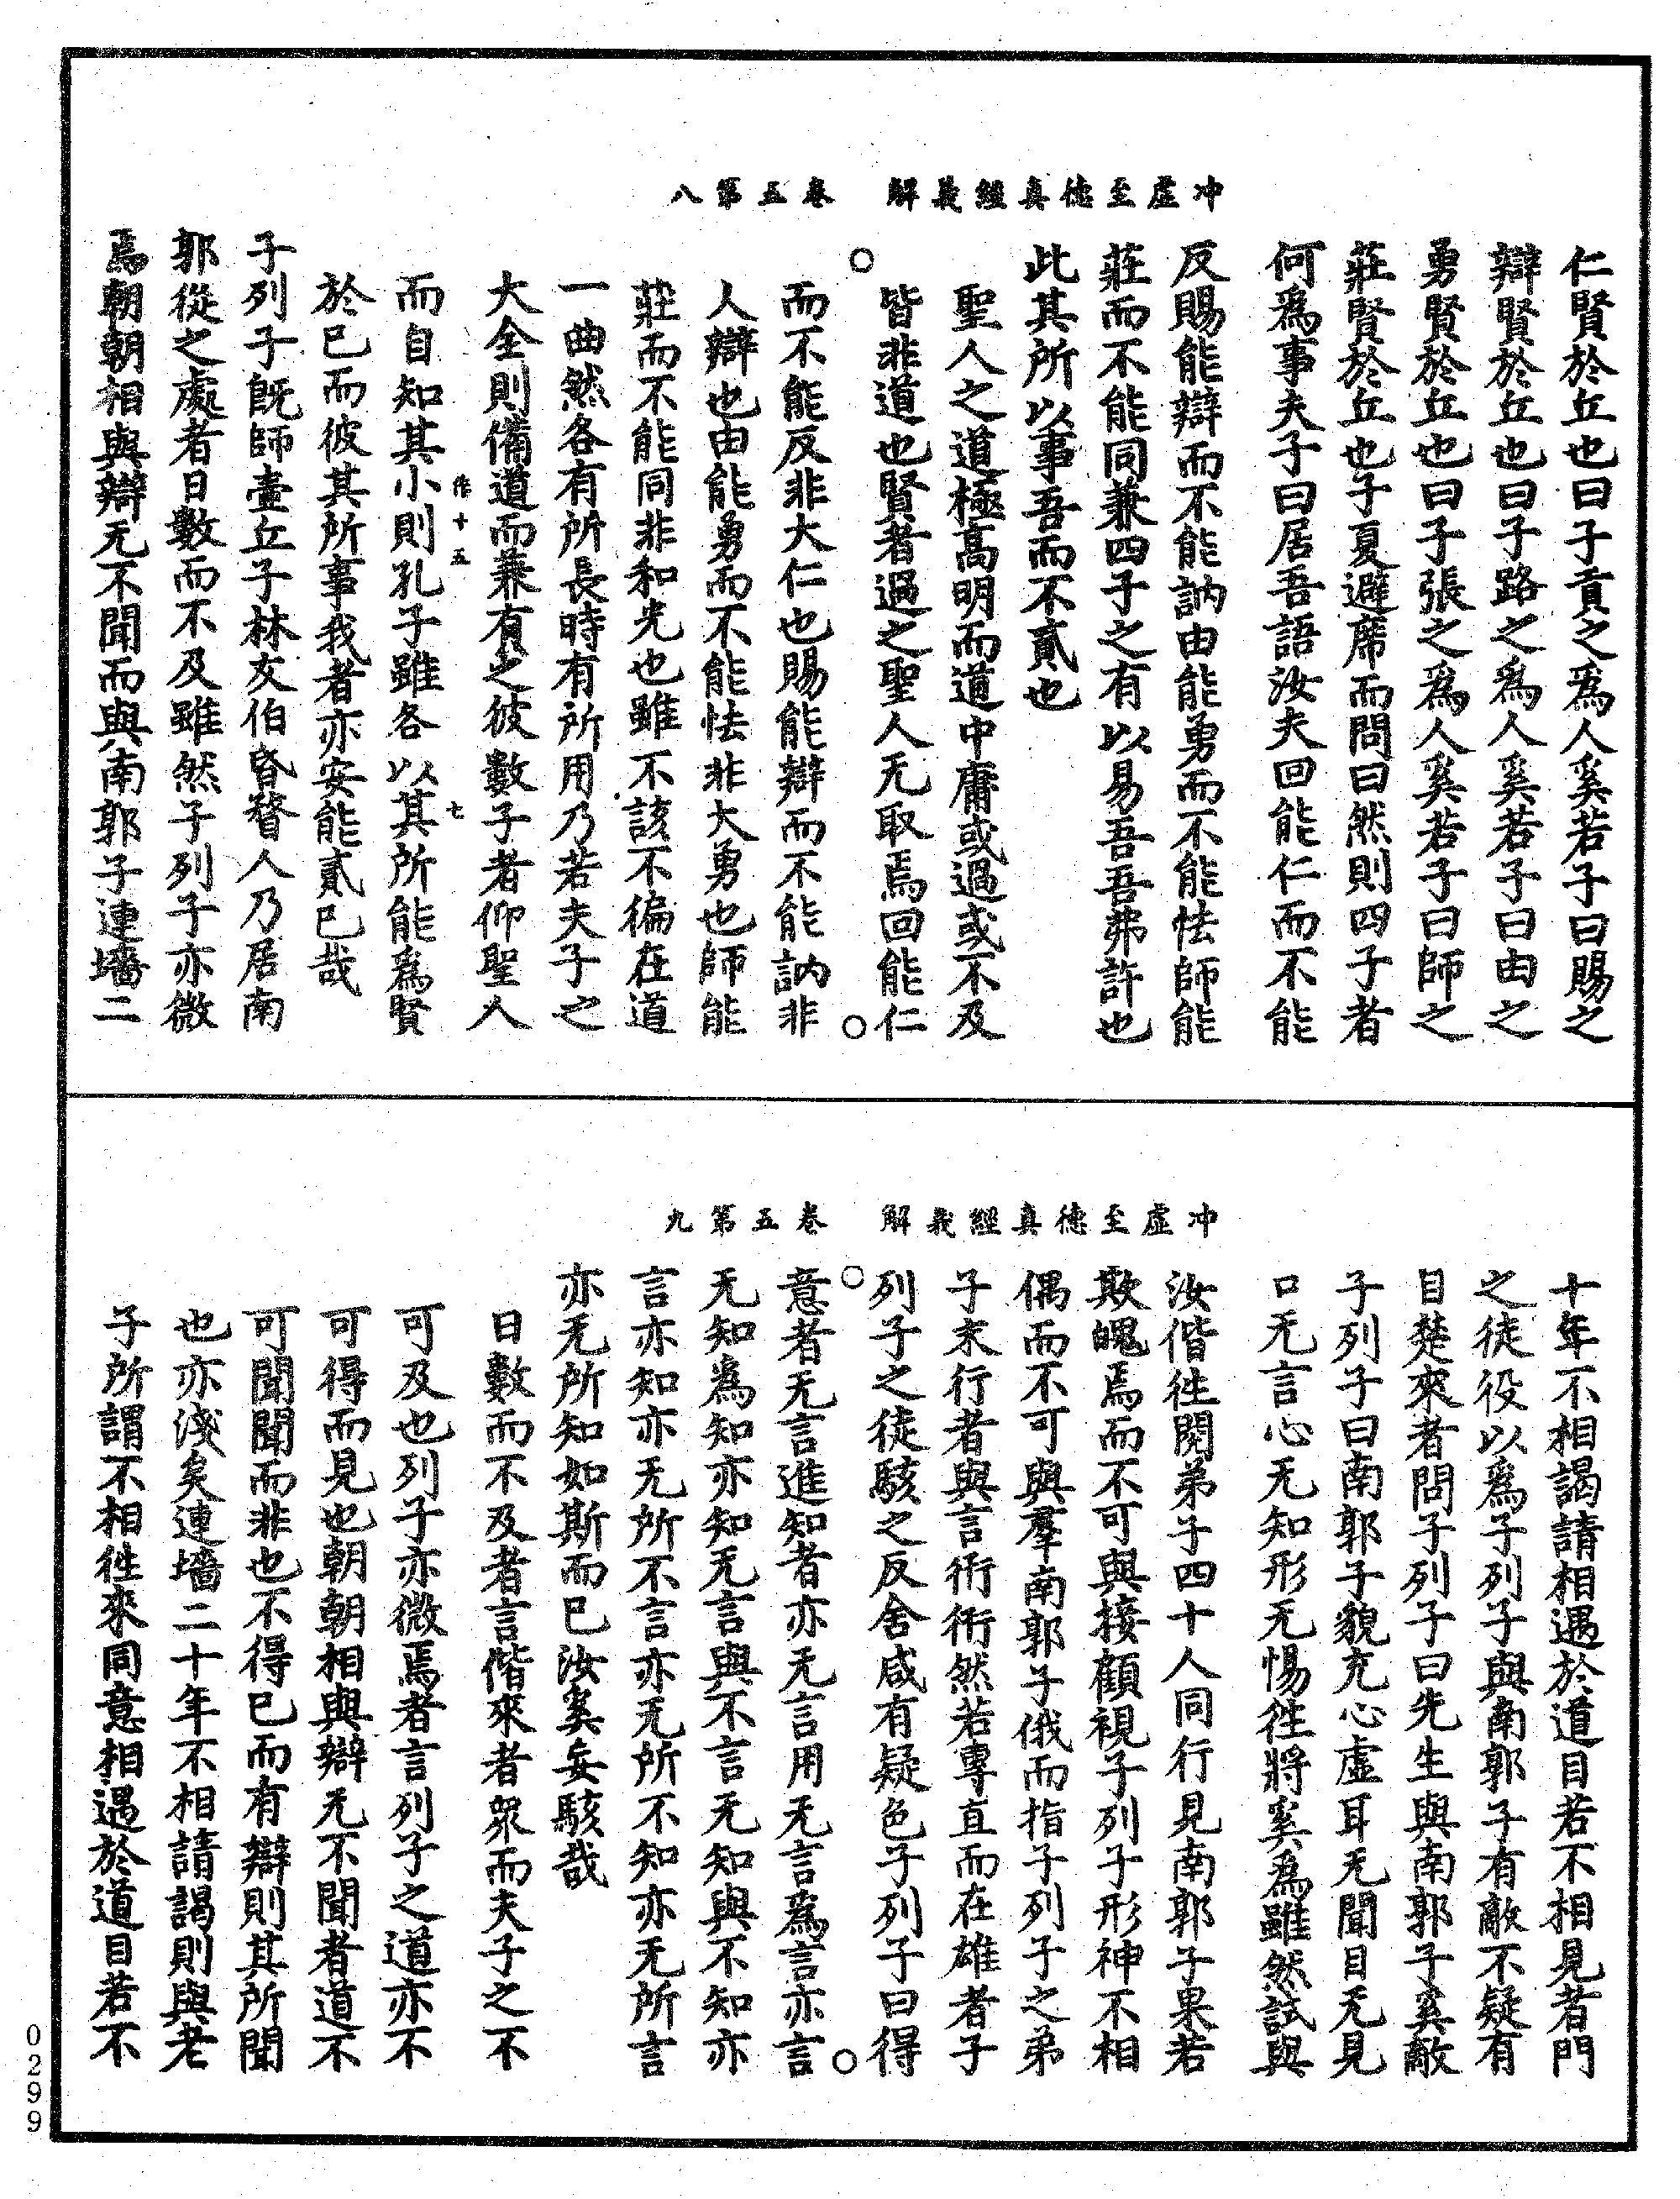 冲虛至德真經義解　卷五第八
仁賢於丘也曰子貢之爲人奚若子曰賜之
辯賢於丘也曰子路之爲人奚若子曰由之
勇賢於丘也曰子張之爲人奚若子曰師之
莊賢於丘也子夏避席而問曰然則四子者
何爲事夫子曰居吾語汝夫回能仁而不能
反賜能辯而不能訥由能勇而不能怯師能
莊而不能同兼四子之有以易吾吾弗許也
此其所以事吾而不貳也
聖人之道極高明而道中庸或過或不及
皆非道也賢者過之聖人无取焉回能仁
而不能反非大仁也賜能辯而不能訥非
人辯也由能勇而不能怯非大勇也師能
莊而不能同非和光也雖不該不徧在道
一曲然各有所長時有所用乃若夫子之
大全則備道而兼有之彼數子者仰聖人
作十五　七
而自知其小則孔子雖各以其所能爲賢
於已而彼其所事我者亦安能貳已哉
子列子既師壷丘子林友伯昏瞀人乃居南
郭從之處者日數而不及雖然子列子亦微
焉朝朝相與辯无不聞而與南郭子連墻二
冲虛至德真經義解　卷五第九
十年不相謁請相遇於道目若不相見者門
之徒役以爲子列子與南郭子有敵不疑有
自楚來者問子列子曰先生與南郭子奚敵
子列子曰南郭子貌充心虛耳无聞目无見
口无言心无知形无惕徃將奚爲雖然試與
汝偕徃閱弟子四十人同行見南郭子果若
欺魄焉而不可與接顧視子列子形神不相
偶而不可與羣南郭子俄而指子列子之弟
子末行者與言衎衎然若專直而在雄者子
列子之徒駭之反舍咸有疑色子列子曰得
意者无言進知者亦无言用无言爲言亦言
无知為知亦知无言與不言无知與不知亦
言亦知亦无所不言亦无所不知亦无所言
亦无所知如斯而已汝奚妄駭哉
日數而不及者言偕來者衆而夫子之不
可及也列子亦微焉者言列子之道亦不
可得而見也朝朝相與辯无不聞者道不
可聞聞而非也不得已而有辯則其所聞
也亦淺矣連墻二十年不相請謁則與老
子所謂不相徃來同意相遇於道目若不
0299